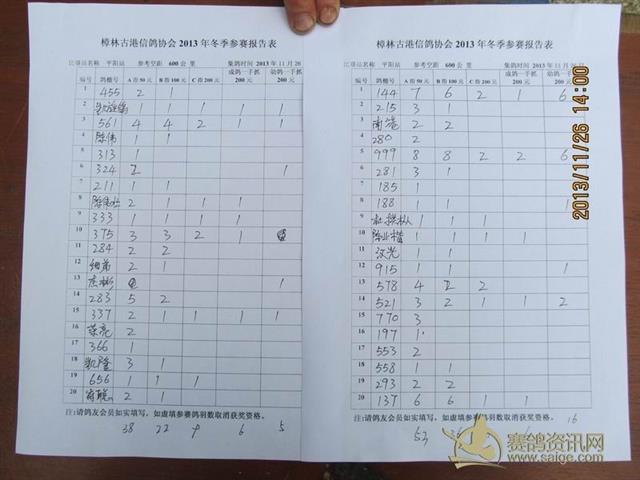 樟林古港信鸽协会 2013 年冬季参赛报告表
比赛站名称 平阳站 参考空距 600公里 集鸽时间 2013 年 11 月 26
编号 鸽棚号 A 指 50 元 B 指 100 元 C 指 200 元 成鸽一手抓 200元 幼鸽一手抓 200元
1 455 2 1
2 1 1 1 1 1
3 561 4 4 2 1 1
4 陈伟 1 1
5 313 1
6 324 2 1
7 211 1 1
8 2 1 1 1
9 333 1 1 1 1
10 375 3 3 2 1
11 284 2 2
12 细弟 2 1
13 1
14 283 5 2
15 337 2 1 1 1 1
16 荣亮 2
17 366 1
18 凯隆 3 1
19 656 1 1 1
20 2 1
注:请鸽友会员如实填写,如虚填参赛鸽羽数取消获奖资格。
38 22 9 6 5
樟林古港信鸽协会 2013 年冬季参赛报告表
比赛站名称 平阳站 参考空距 600公里 集鸽时间 2013 年 11 月 26
编号 鸽棚号 A 指 50 元 B 指 100 元 C 指 200 元 成鸽一手抓 200元 幼鸽一手抓 200元
1 144 7 6 2 1 6
2 215 3 1
3 2 2
4 280 2
5 999 8 8 2 2 6
6 281 3 1
7 185 1
8 188 1 1 1
9 1 1 1
10 1 1 1 1
11 汉光 1 1
12 915 1 1 1
13 578 4 2 2
14 521 3 2 1 1 2
15 770 3
16 197 1
17 553 2
18 558 1 1
19 293 2 2
20 137 6 6 1 1
注:请鸽友会员如实填写,如虚填参赛鸽羽数取消获奖资格。
53 16
2013/11/26 14:00
赛鸽资讯网
www.saige.com